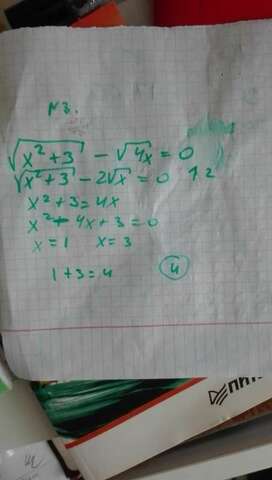 №3.
√x²+3 - √4x = 0
√x²+3 - 2√x = 0 1.2
x²+3=4x
x²-4x+3=0
x=1 x=3
1+3=4 4
ПИТ